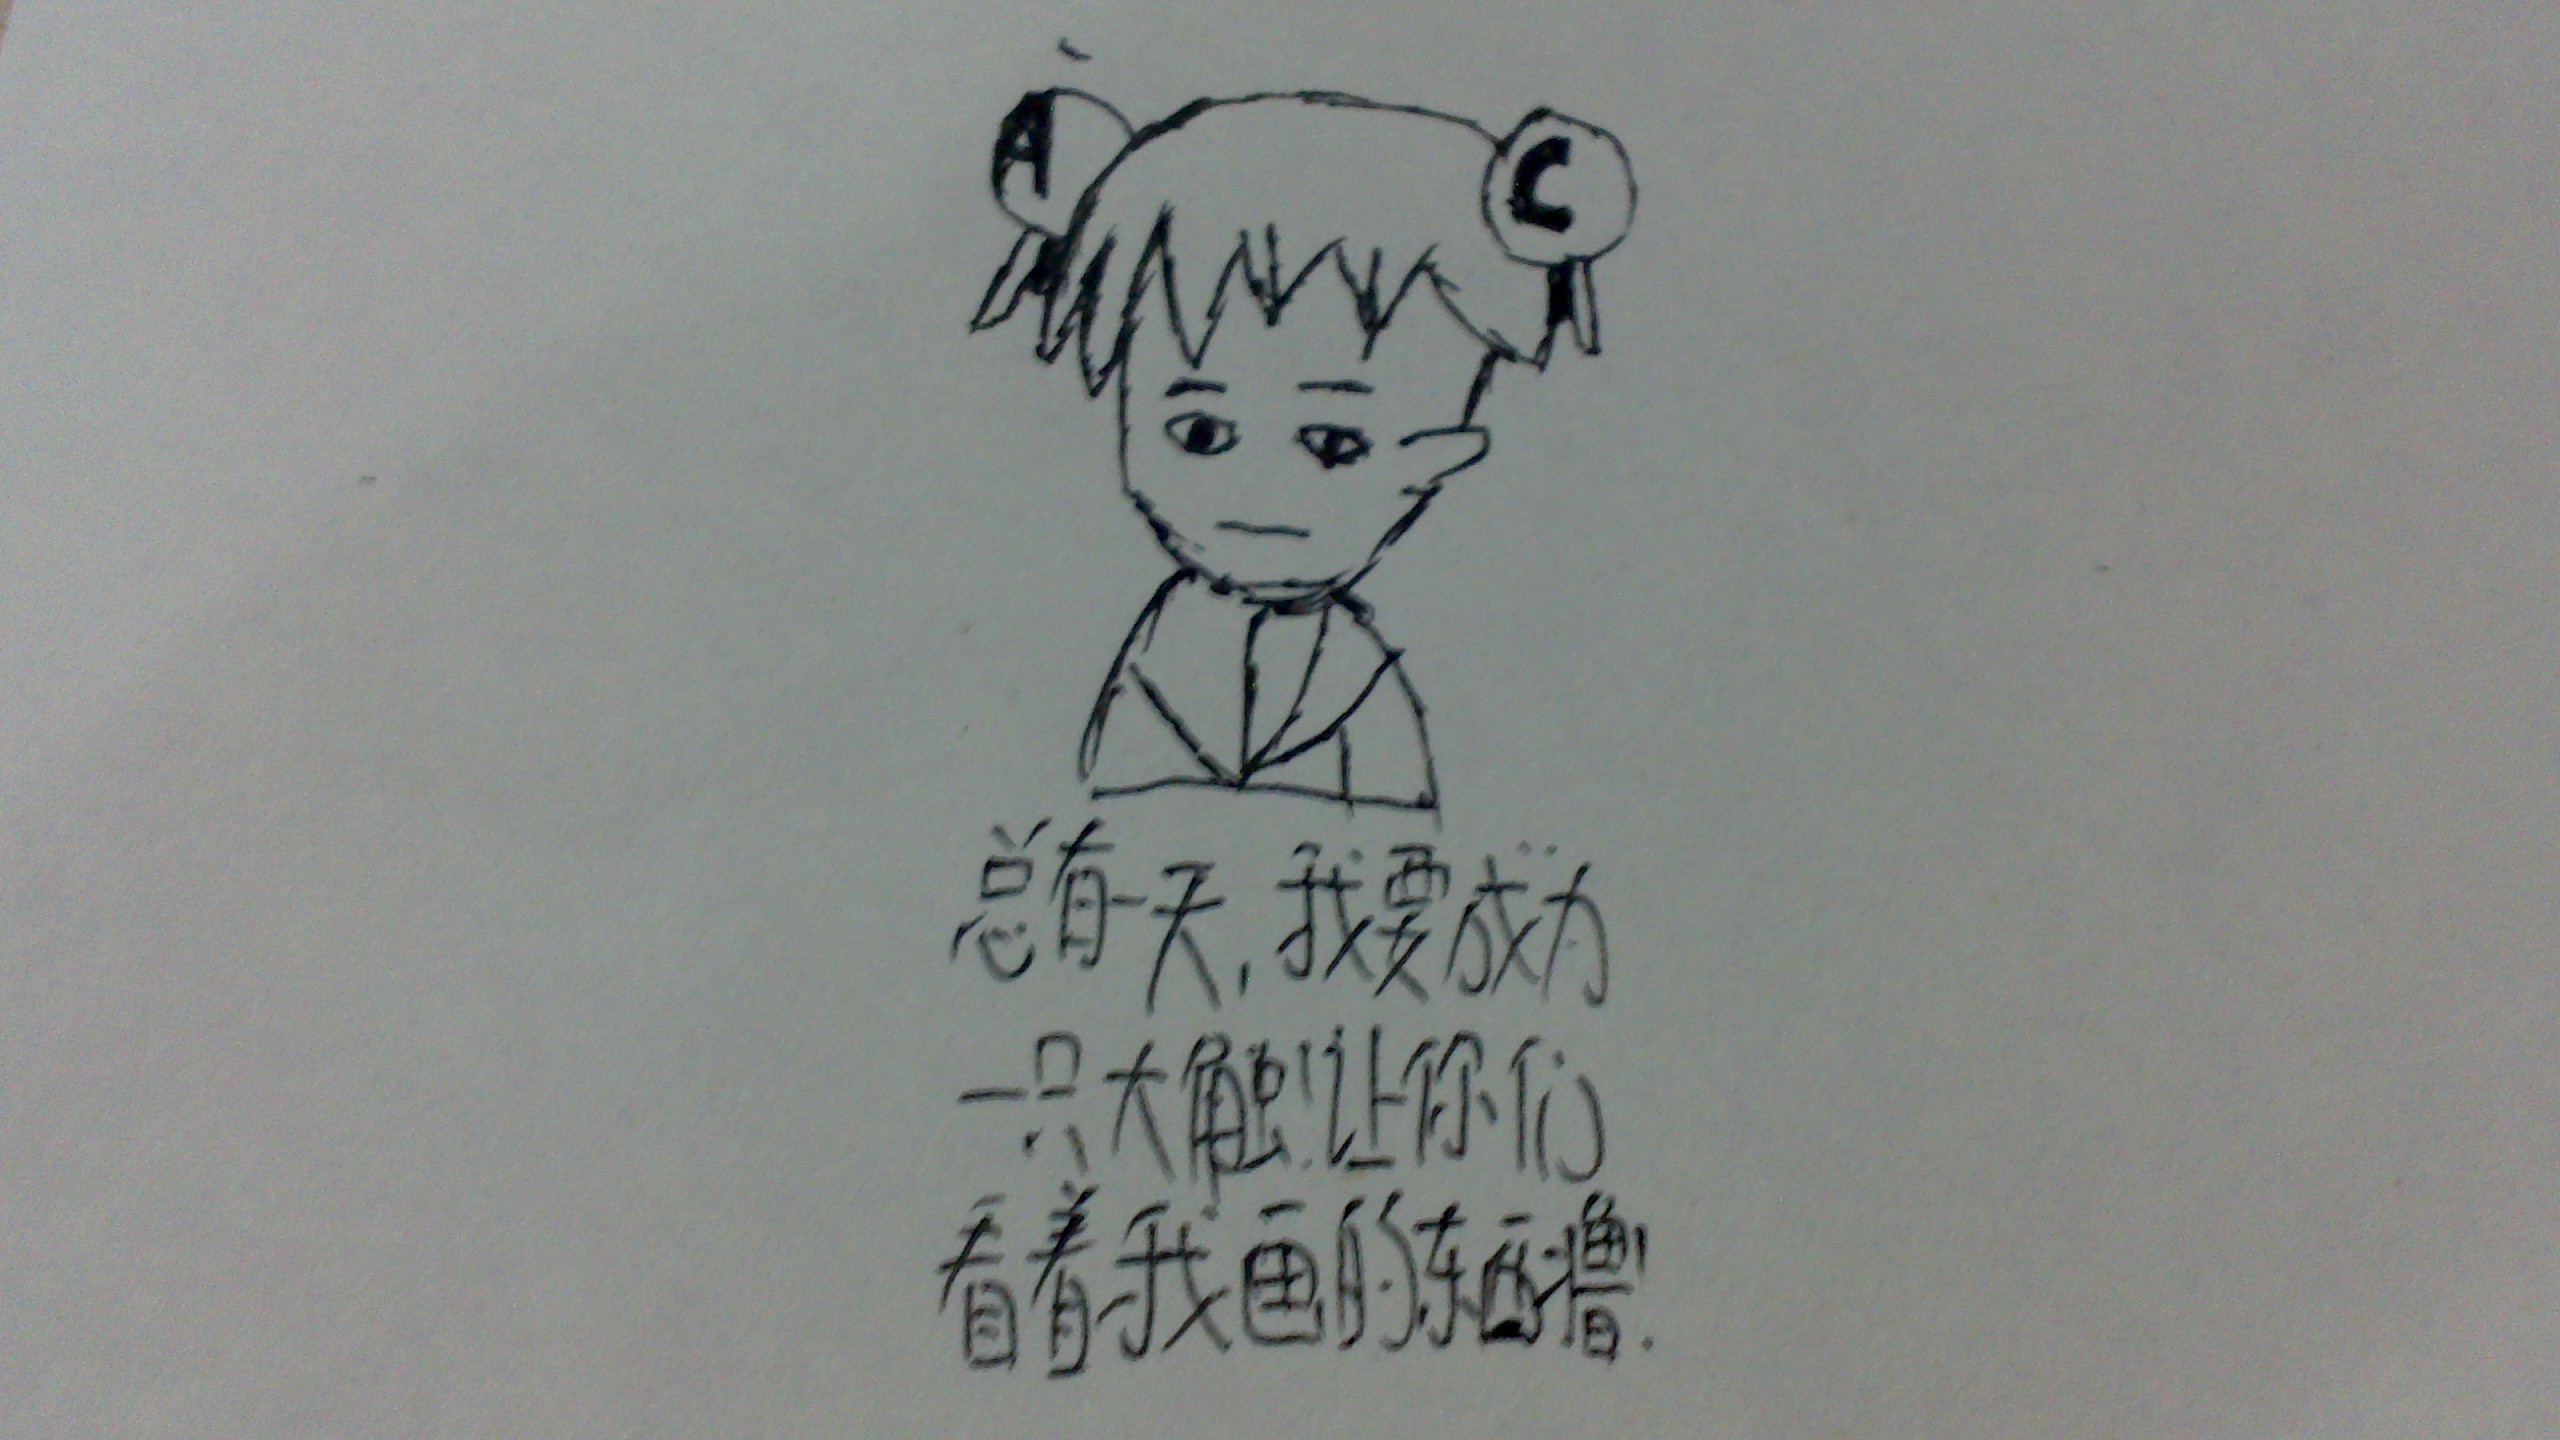 A C
总有一天,我要成为
一只大触!让你们
看着我画的东西撸!